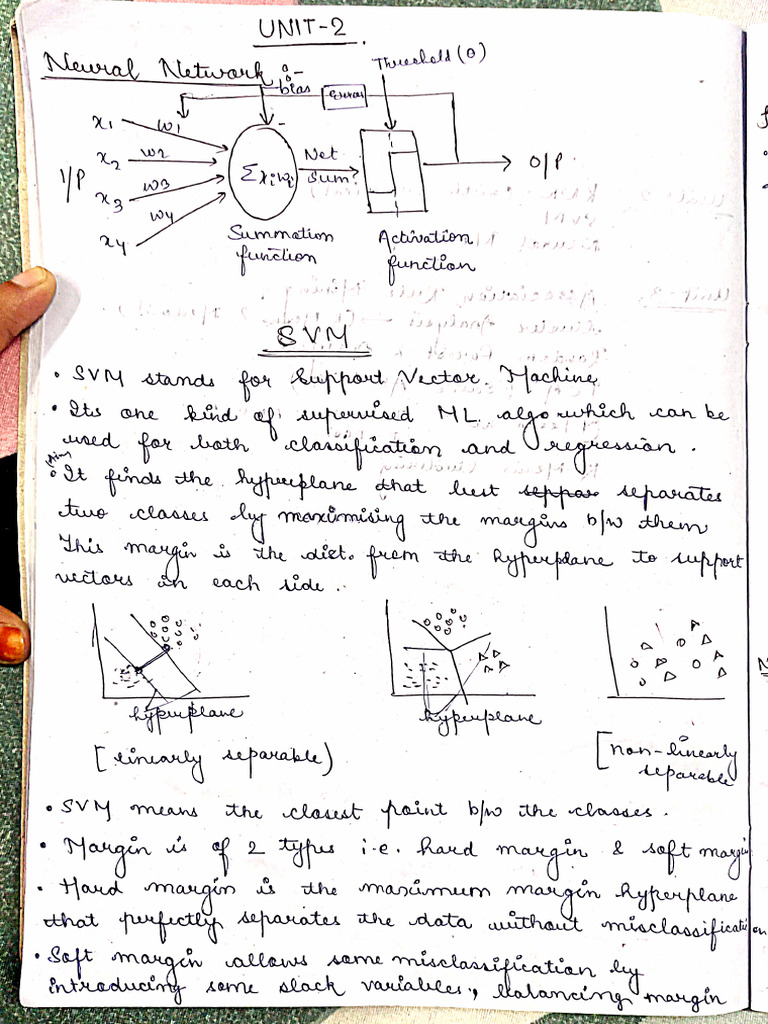 UNIT-2
Neural Network :-
Threshold (θ)
bias
Error
x1
w1
-
x2
w2
Net
O/P
I/P
Σxiwi
x3
w3
Sum
w4
x4
Summation
function
Activation
function
SVM
• SVM stands for Support Vector Machine
• Its one kind of supervised ML algo which can be
used for both classification and regression.
(Aim)
• It finds the hyperplane that best separates
two classes by maximising the margins b/w them
This margin is the dist. from the hyperplane to support
vectors on each side.
hyperplane
hyperplane
[linearly separable)
[non-linearly
separable
• SVM means the closest point b/w the classes.
• Margin is of 2 types i.e. hard margin & soft margin
• Hard margin is the maximum margin hyperplane
that perfectly separates the data without misclassification
• Soft margin allows some misclassification by
introducing some slack variables, balancing margin